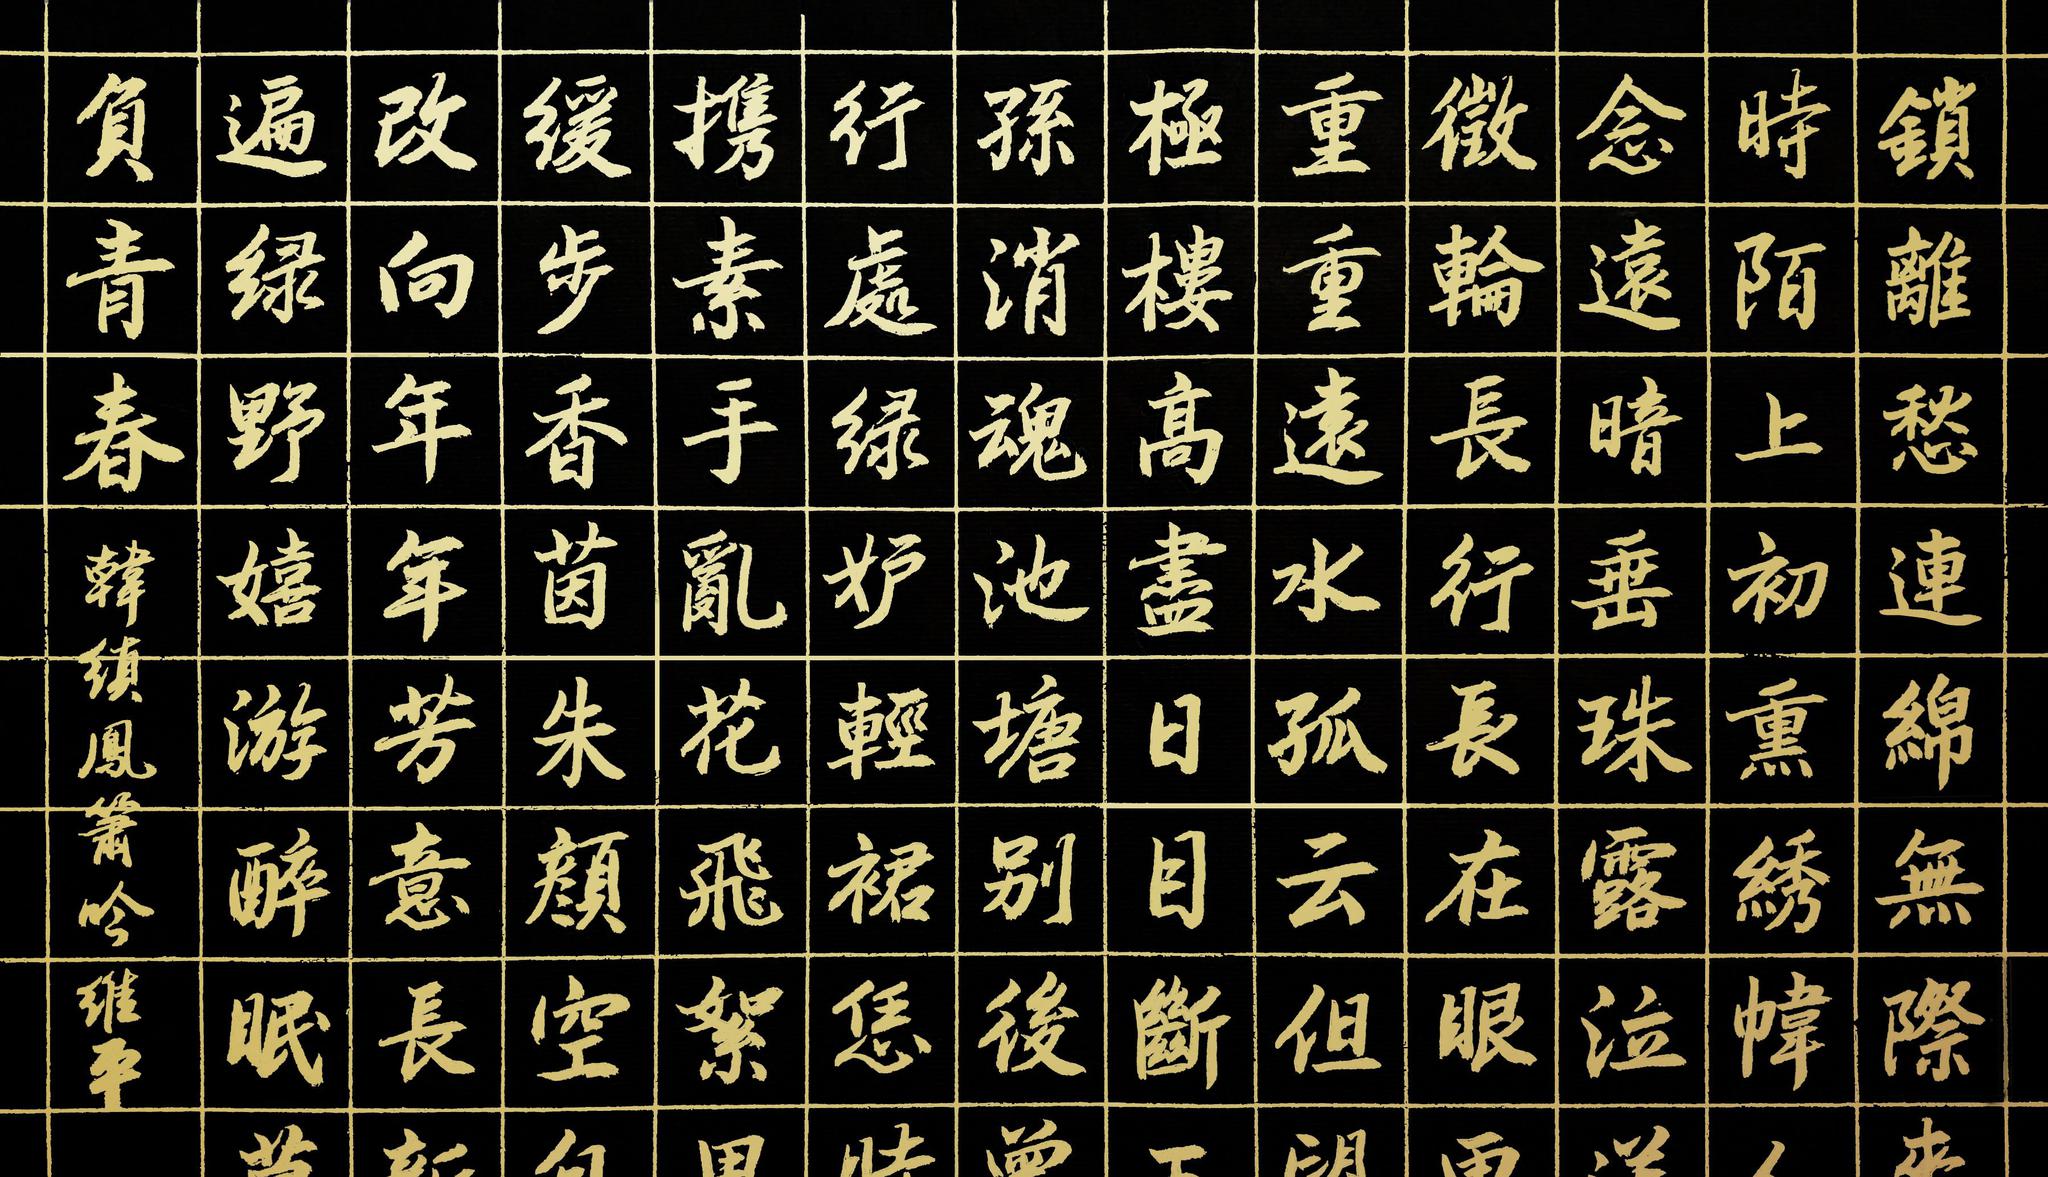 鎖離愁連綿無際來
時陌上初熏綉幃人
念遠暗垂珠露泣送
徵輪長行長在眼更
重重遠水孤云但望
極樓高盡日目斷王
孫消魂池塘別後曾
行處绿妒輕裙恁時
攜素手亂花飛絮
緩步香茵朱顏空自
改向年年芳意長新
遍绿野嬉游醉眠莫
負青春 韓縝鳳簫吟 維平